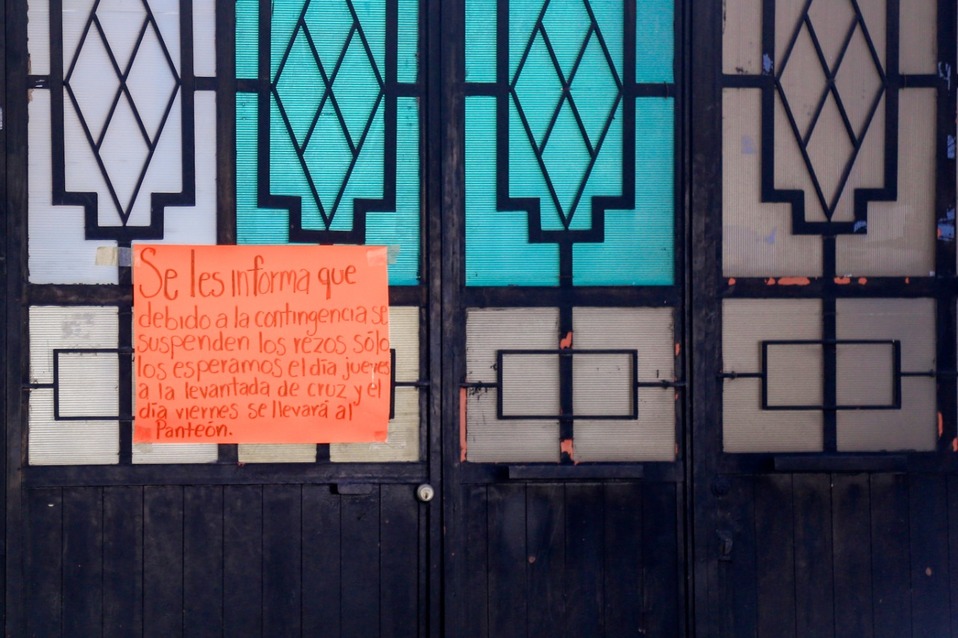 Se les informa que
debido a la contingencia se
suspenden los rezos, sólo
los esperamos el día jueves
a la levantada de cruz y el
día viernes se llevará al
Panteón.